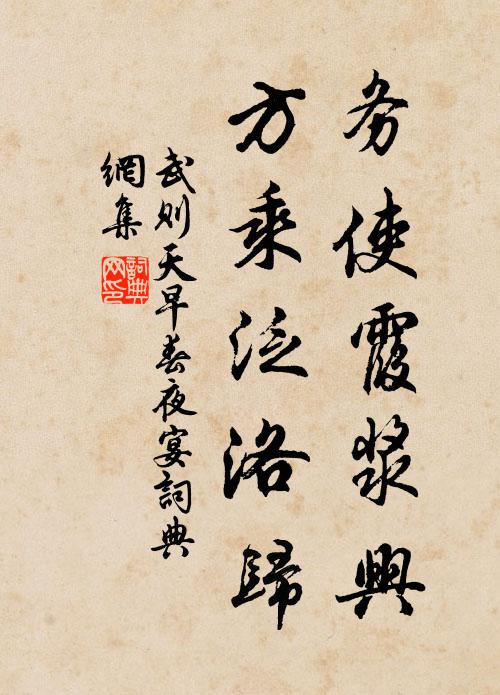 务使霞漿興
方乘泛洛歸
武则天早春夜宴詞典
網集
詞典
网印